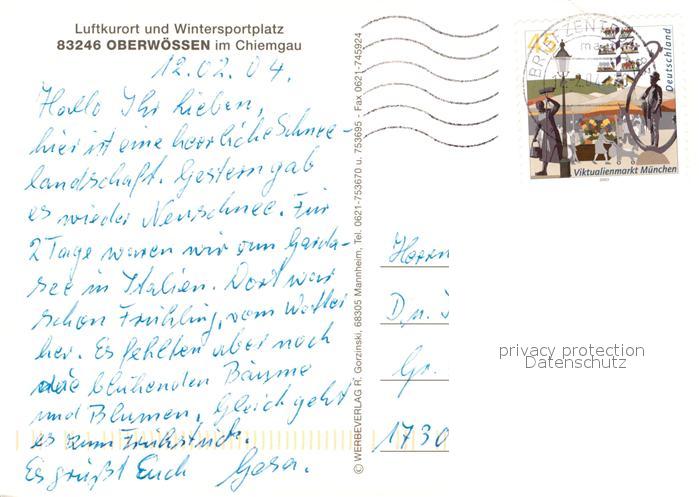 Luftkurort und Wintersportplatz
83246 OBERWÖSSEN im Chiemgau
12.02.04.
Hallo Ihr Lieben,
hier ist eine herrliche Schnee-
landschaft. Gestern gab
es wieder Neuschnee. Für
2 Tage waren wir am Garda-
see in Italien. Dort war
schon Frühling, vom Wetter
her. Es fehlten aber noch
die blühenden Bäume
und Blumen. Gleich geht
es zum Frühstück.
Es grüßt Euch
© WERBEVERLAG R. Gorzinski, 68305 Mannheim, Tel. 0621-753670 u. 753695 - Fax 0621-745924
45
Deutschland
Viktualienmarkt München
2003
BRIEFZENTRUM
Herrn
Gr.
1730
privacy protection
Datenschutz